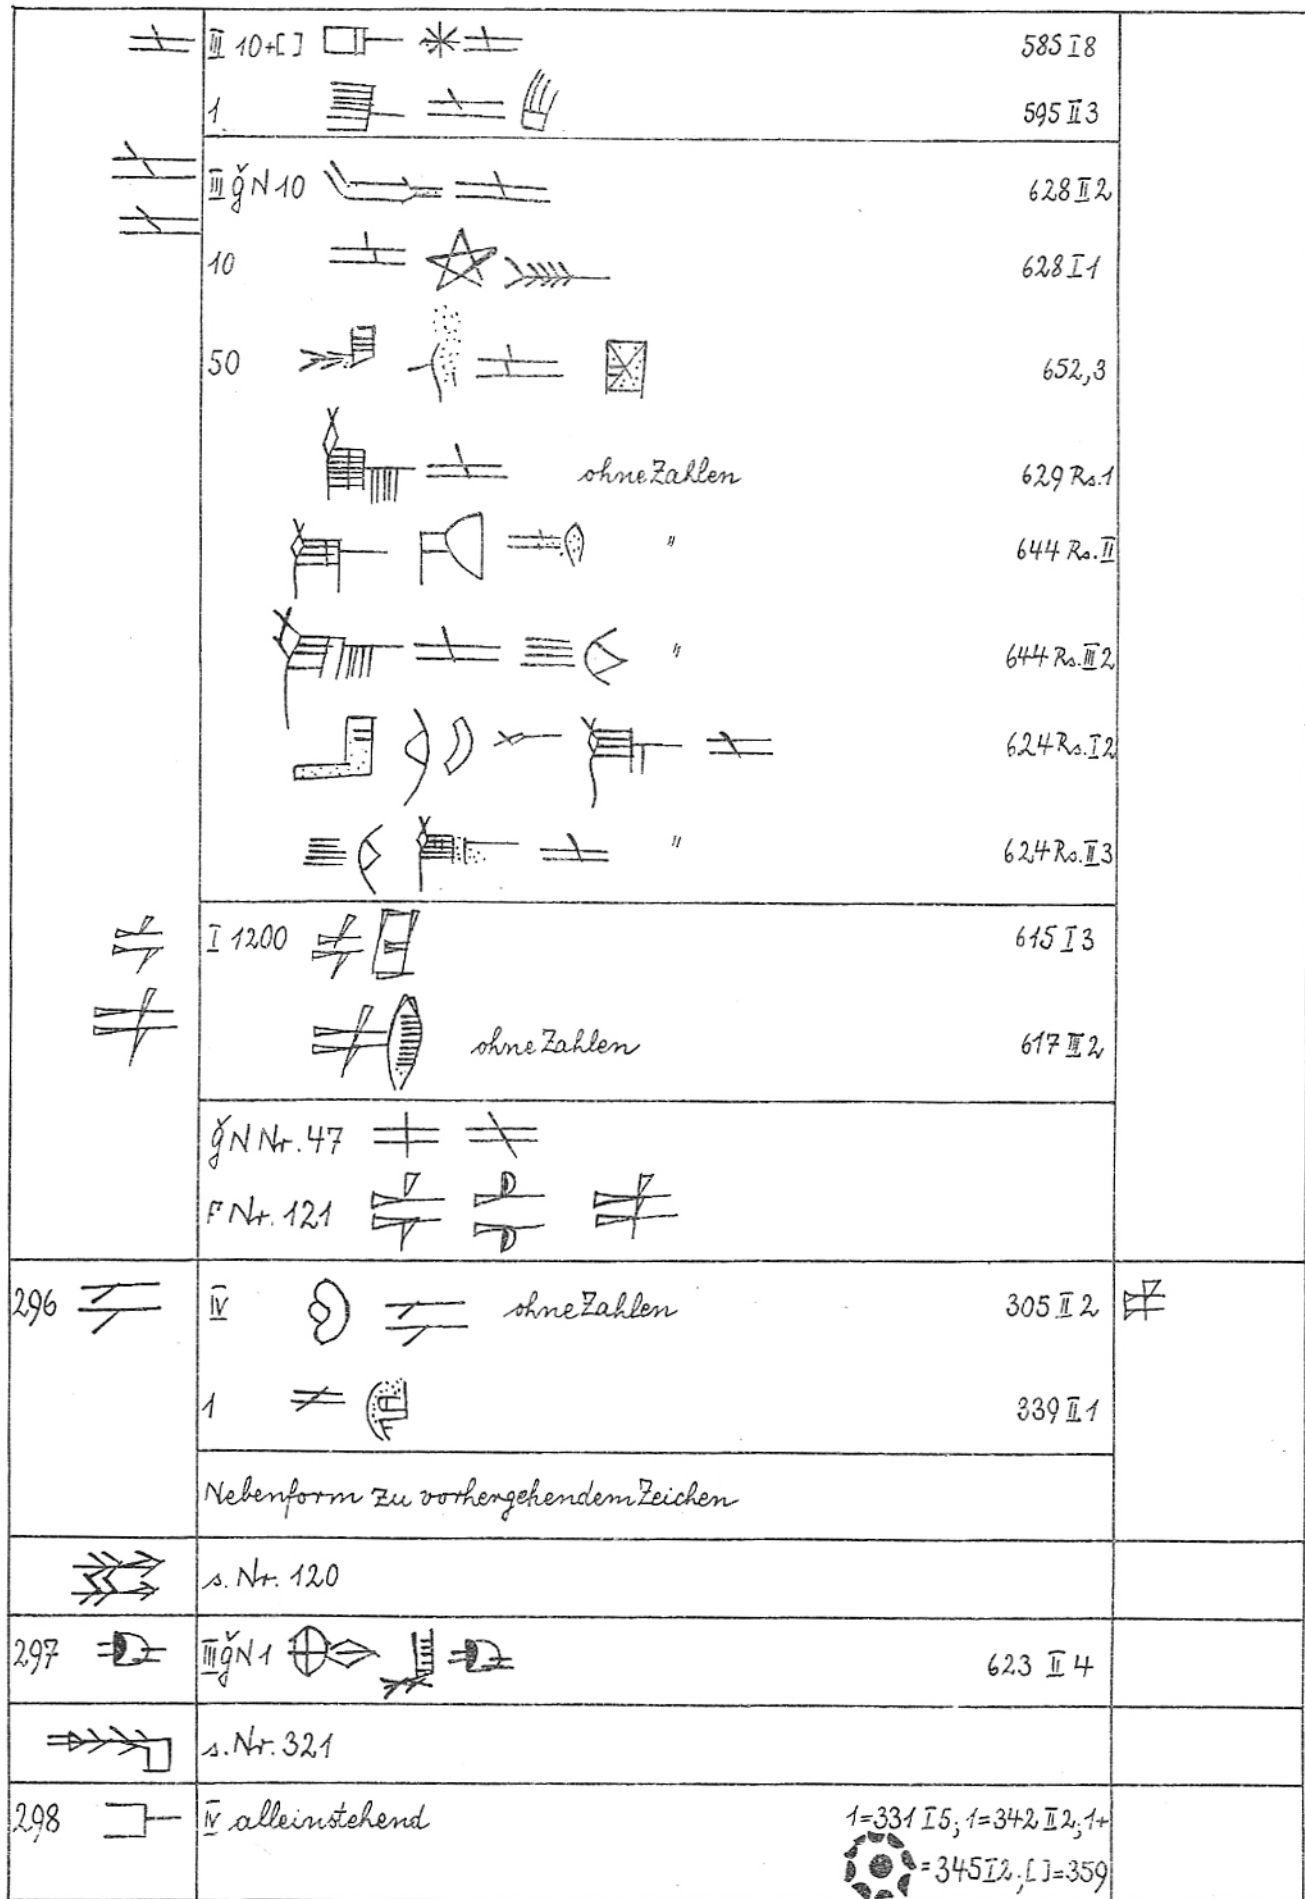 III 10+[] 585 I 8
1 595 II 3
III ǧN 10 628 II 2
10 628 I 1
50 652,3
ohne Zahlen 629 Rs. 1
" 644 Rs. II
" 644 Rs. III 2
624 Rs. I 2
" 624 Rs. II 3
I 1200 615 I 3
ohne Zahlen 617 III 2
ǧN Nr. 47
F Nr. 121
296 IV ohne Zahlen 305 II 2
1 339 II 1
Nebenform zu vorhergehendem Zeichen
s. Nr. 120
297 III ǧN 1 623 II 4
s. Nr. 321
298 IV alleinstehend 1=331 I 5; 1=342 II 2; 1+
=345 I 2; [ ]=359